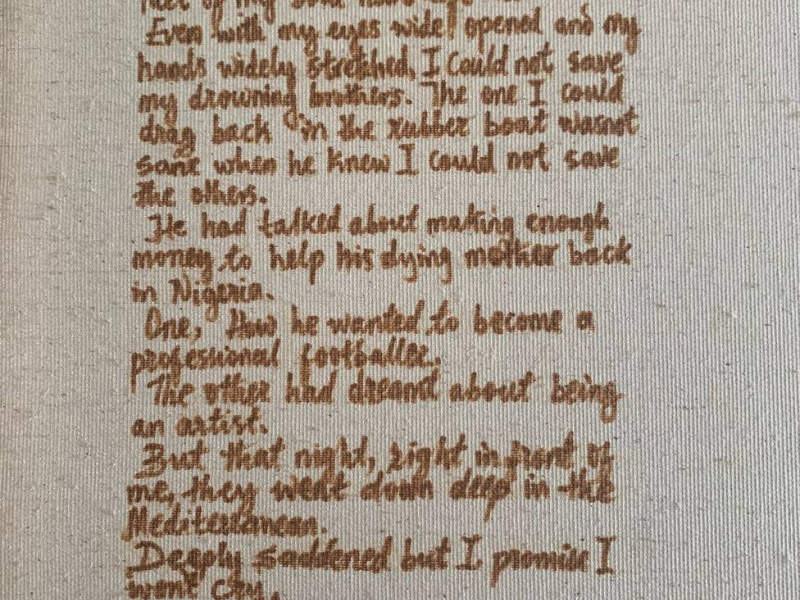 of my
Even with my eyes wide opened and my
hands widely stretched, I could not save
my drowning brothers. The one I could
drag back in the rubber boat wasnot
same when he knew I could not save
the others.
He had talked about making enough
money to help his dying mother back
in Nigeria.
One, How he wanted to become a
professional footballer.
The other had dreamt about being
an artist.
But that night, right infront of
me, they went down deep in the
Mediterranean.
Deeply saddened but I promise I
wont cry.